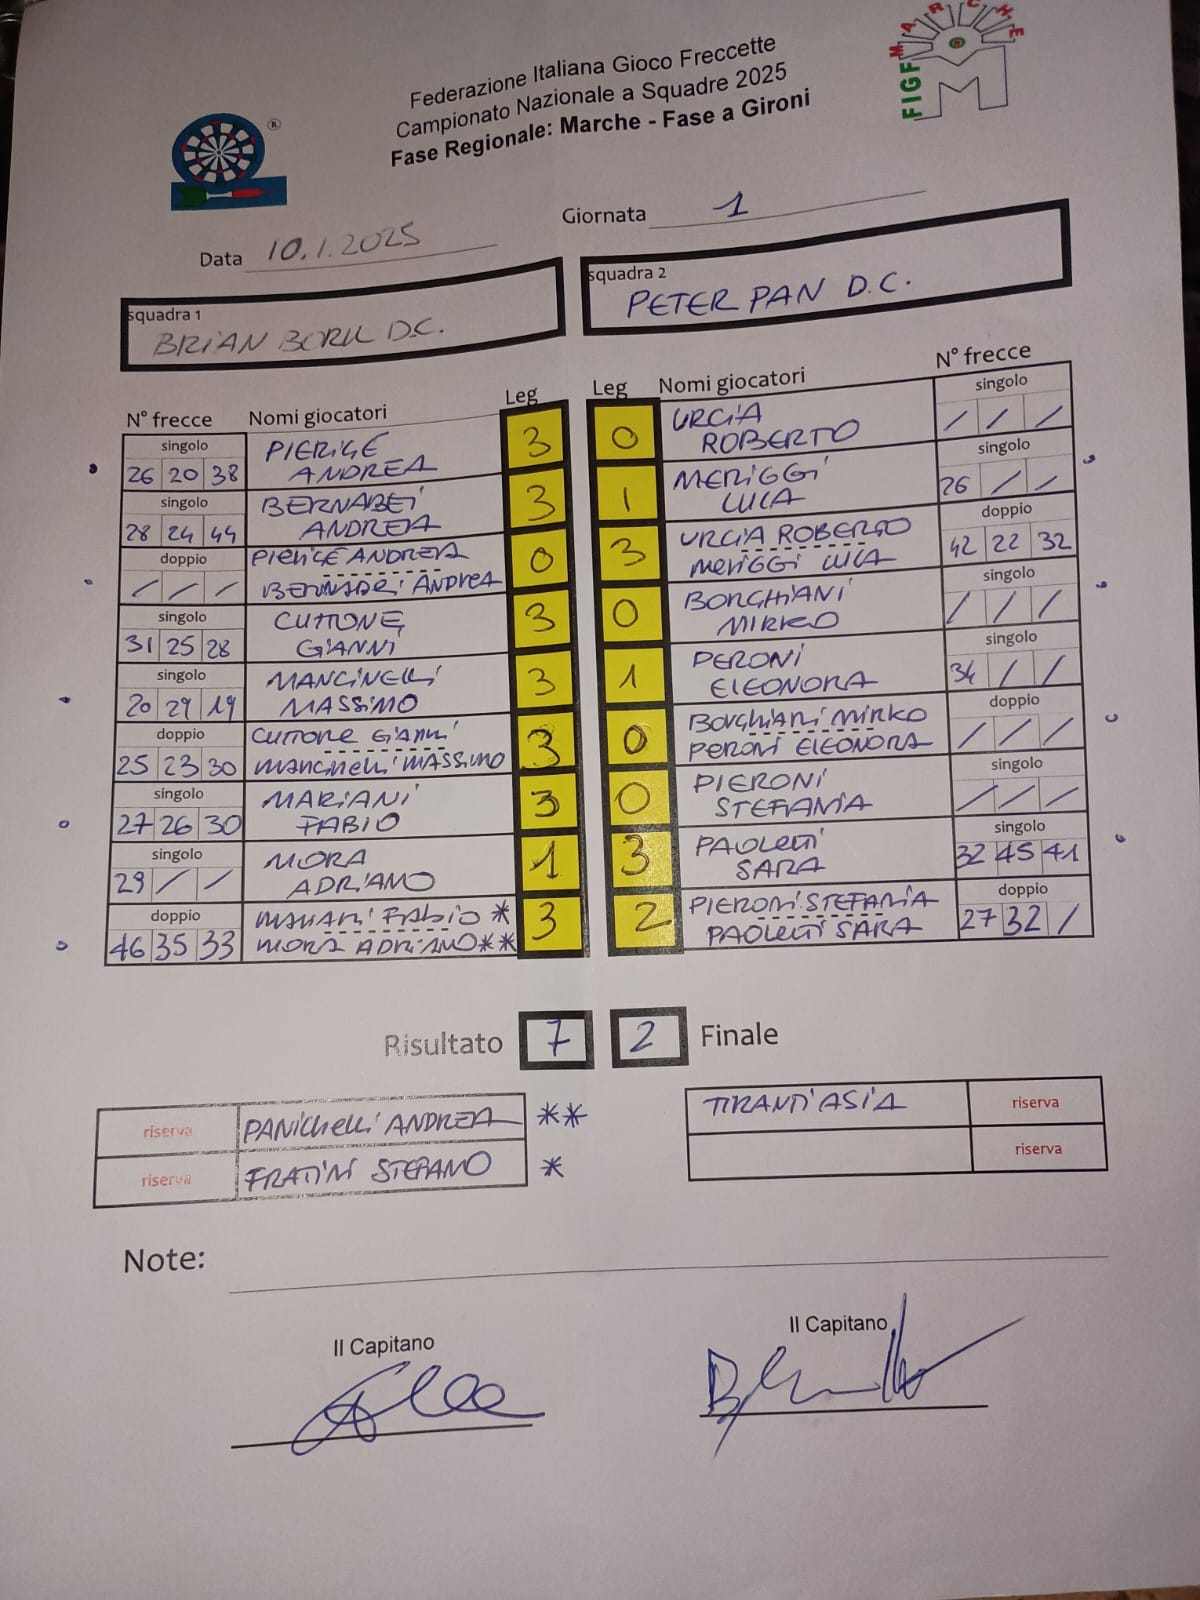 Federazione Italiana Gioco Freccette
Campionato Nazionale a Squadre 2025
Fase Regionale: Marche - Fase a Gironi
FIGF MARCHE
M
®
Data 10.1.2025
Giornata 1
squadra 1
BRIAN BORU D.C.
squadra 2
PETER PAN D.C.
N° frecce Nomi giocatori Leg Leg Nomi giocatori N° frecce
singolo PIERIGÈ 3 0 URCIA singolo
26 20 38 ANDREA ROBERTO / / /
singolo BERNABEI 3 1 MERIGGI singolo
28 24 44 ANDREA LUCA 26 / /
doppio PIERIGÈ ANDREA 0 3 URCIA ROBERTO doppio
/ / / BERNABEI ANDREA MERIGGI LUCA 42 22 32
singolo CUTTONE 3 0 BORGHIANI singolo
31 25 28 GIANNI MIRKO / / /
singolo MANCINELLI 3 1 PERONI singolo
20 29 19 MASSIMO ELEONORA 34 / /
doppio CUTTONE GIANNI 3 0 BORGHIANI MIRKO doppio
25 23 30 MANCINELLI MASSIMO PERONI ELEONORA / / /
singolo MARIANI 3 0 PIERONI singolo
27 26 30 FABIO STEFANIA / / /
singolo MORA 1 3 PAOLETTI singolo
29 / / ADRIANO SARA 32 45 41
doppio MARIANI FABIO * 3 2 PIERONI STEFANIA doppio
46 35 33 MORA ADRIANO ** PAOLETTI SARA 27 32 /
Risultato 7 2 Finale
riserva PANICHELLI ANDREA **
riserva FRATINI STEFANO *
TIRANTI ASIA riserva
riserva
Note:
Il Capitano
Il Capitano